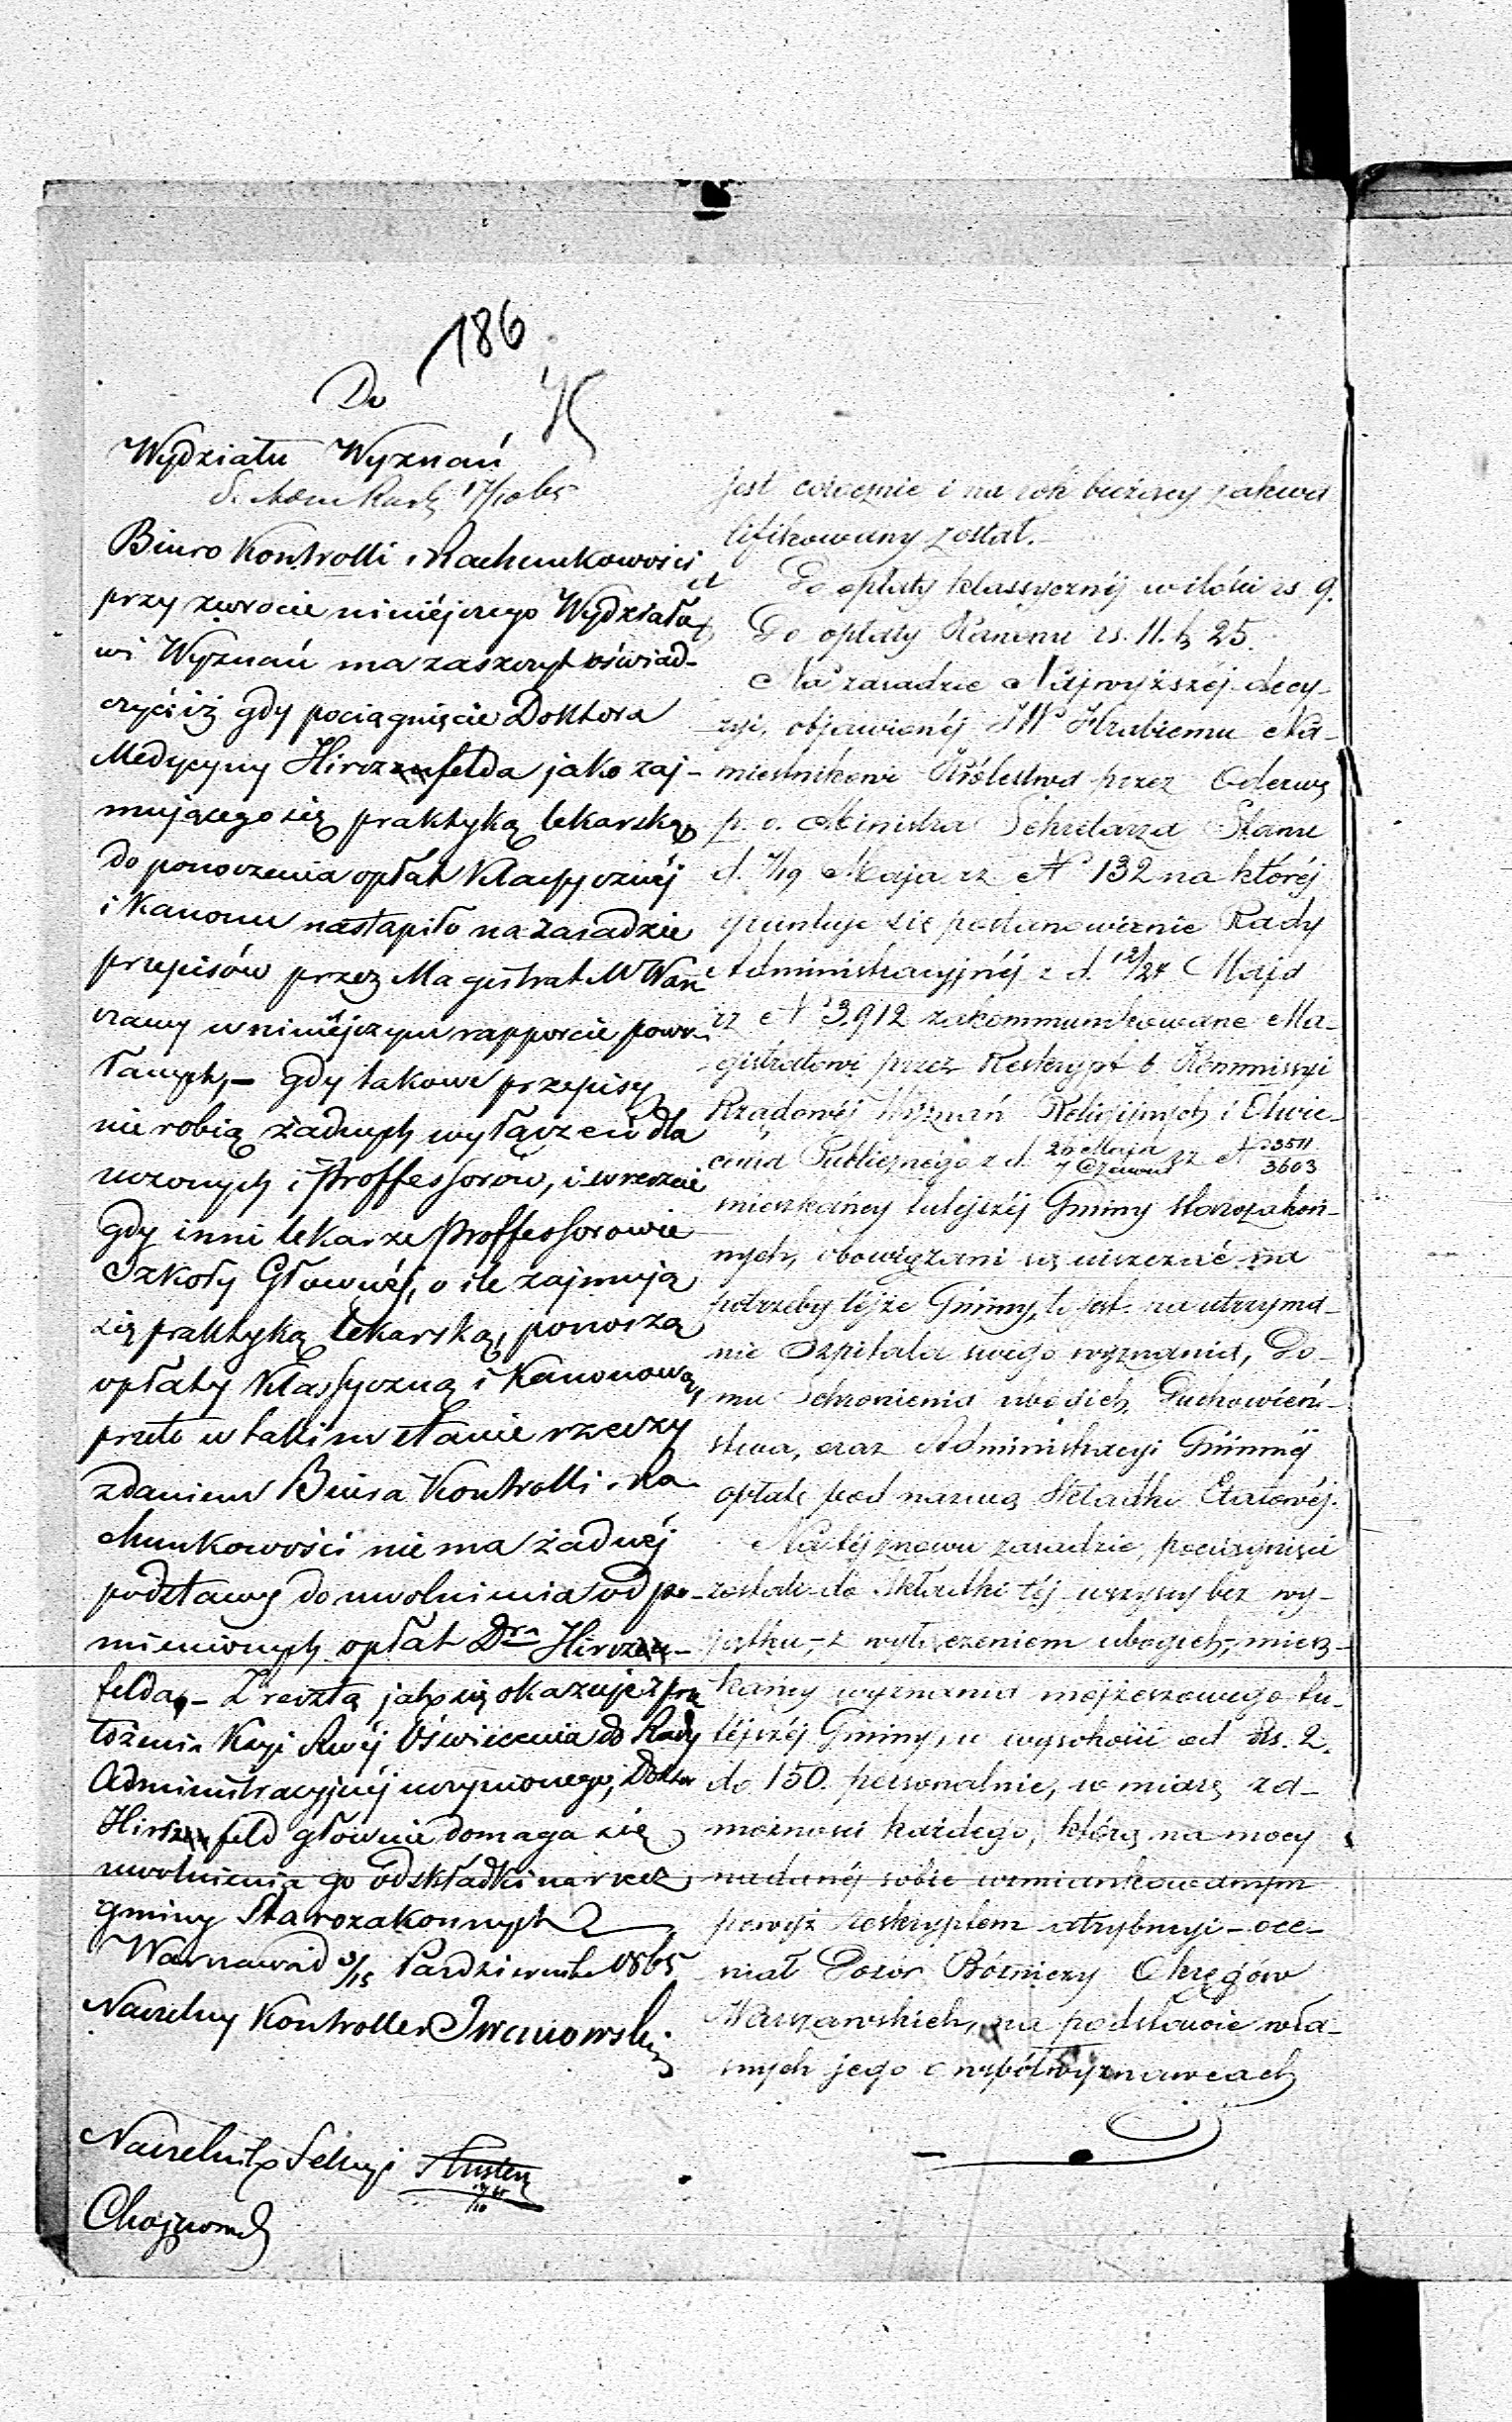 186
Do
Wydziału Wyznań
17/10 65
Biuro Kontrolli i Rachunkowości
przy zwrocie niniéjszego Wydziało
wi Wyznań ma zaszczyt oświad-
czyć iż gdy pociągnięcie Doktora
Medycyny Hirszfelda jako zaj-
mującego się praktyką lekarską
do ponoszenia opłat Klassycznéj
i Kanonu nastąpiło na zasadzie
przepisów przez Magistrat M War
szawy w niniéjszym rapporcie powo-
łanych, – gdy takowe przepisy
nie robią żadnych wyłączeń dla
uczonych i Proffessorów, i wreszcie
gdy inni lekarze Proffessorowie
Szkoły Głównéj, o ile zajmują
się praktyką lekarską, ponoszą
opłaty Klassyczną i Kanonową,
przeto w takim stanie rzeczy
zdaniem Biura Kontrolli i Ra-
chunkowości nie ma żadnéj
podstawy do uwolnienia od po-
mienionych opłat Dra Hirsz-
felda, – Zresztą jak się okazuje z prze
łożenia Kssyi Rwéj Oświecenia do Rady
Administracyjnéj uczynionego, Doktor
Hirszfeld głównie domaga się
uwolnienia go od składki na rzecz
gminy Starozakonnych
Warszawa d 3/15 Października 1865
Naczelny Kontroller Iwanowski
Naczelnik Sekcyi
jest corocznie i na rok bieżący zakwa
lifikowany został. –
Do opłaty klassycznéj w ilości rs. 9.
Do opłaty Kanonu rs. 11. k 25.
Na zasadzie Najwyższéj decy-
zyi, objawionéj JW Hrabiemu Na-
miestnikowi Królestwa przez Odezwę
p. o. Ministra Sekretarza Stanu
d. 7/19 Maja rz No 132 na któréj
gruntuje się postanowienie Rady
Administracyjnéj z d. 12/24 Maja
rz No 3.912 zakommunikowane Ma-
gistratowi przez Reskrypt b. Kommissyi
Rządowéj Wyznań Religijnych i Oświe-
cenia Publicznego z d. 26 Maja / 7 Czerwca rz No 3511 / 3603
mieszkańcy tutejszéj Gminy starozakon-
nych, obowiązani są uiszczać na
potrzeby téjże Gminy, to jest na utrzyma-
nie Szpitala swego wyznania, Do-
mu Schronienia ubogich, Duchowień-
stwa, oraz Administracyi Gminnéj
opłatę pod nazwą Składki Etatowéj.
Na téj znowu zasadzie, pociągnięci
zostali do składki téj wszyscy bez wy-
jątku, – z wyłączeniem ubogich, – miesz-
kańcy wyznania mojżeszowego tu-
téjszéj Gminy, w wysokości od Rs. 2.
do 150. personalnie, w miarę za-
możności każdego, którą na mocy
nadanéj sobie wzmiankowanym
powyż reskryptem atrybucyi – oce-
niał Dozór Bóżniczy Okręgów
Warszawskich, na podstawie wła-
snych jego o współwyznawcach